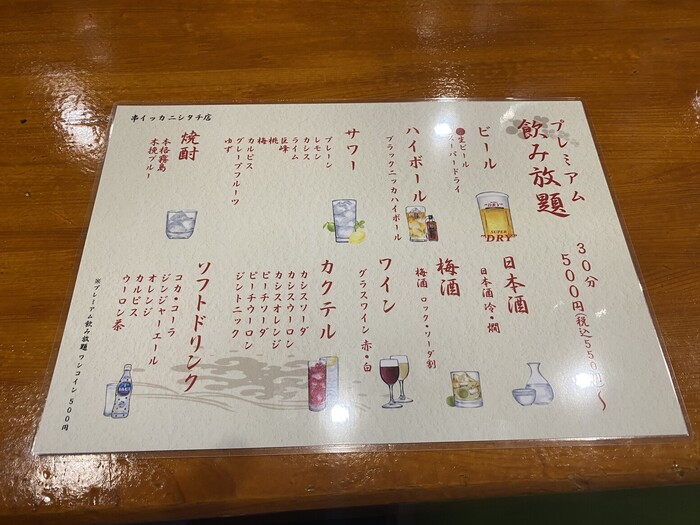 串イッカニシタチ店
プレミアム
飲み放題
30分
500円(税込550円)〜
ビール
●生ビール
スーパードライ
SUPER
"DRY"
ハイボール
ブラックニッカハイボール
サワー
プレーン
レモン
カシス
ライム
巨峰
桃
梅
カルピス
グレープフルーツ
ゆず
焼酎
本格霧島
木挽ブルー
日本酒
日本酒 冷・燗
梅酒
梅酒 ロック・ソーダ割
ワイン
グラスワイン 赤・白
カクテル
カシスソーダ
カシスウーロン
カシスオレンジ
ピーチソーダ
ピーチウーロン
ジントニック
ソフトドリンク
コカ・コーラ
ジンジャーエール
オレンジ
カルピス
ウーロン茶
プレミアム飲み放題 ワンコイン 500円